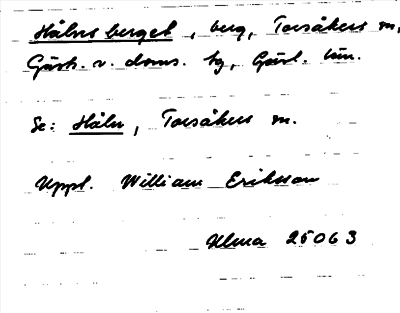 Hålns berget, berg, Torsåkers sn,
Gästr. v. doms. tg, Gävl. län.
Se: Håln, Torsåkers sn.
Uppl. William Eriksson
Ulma 25063